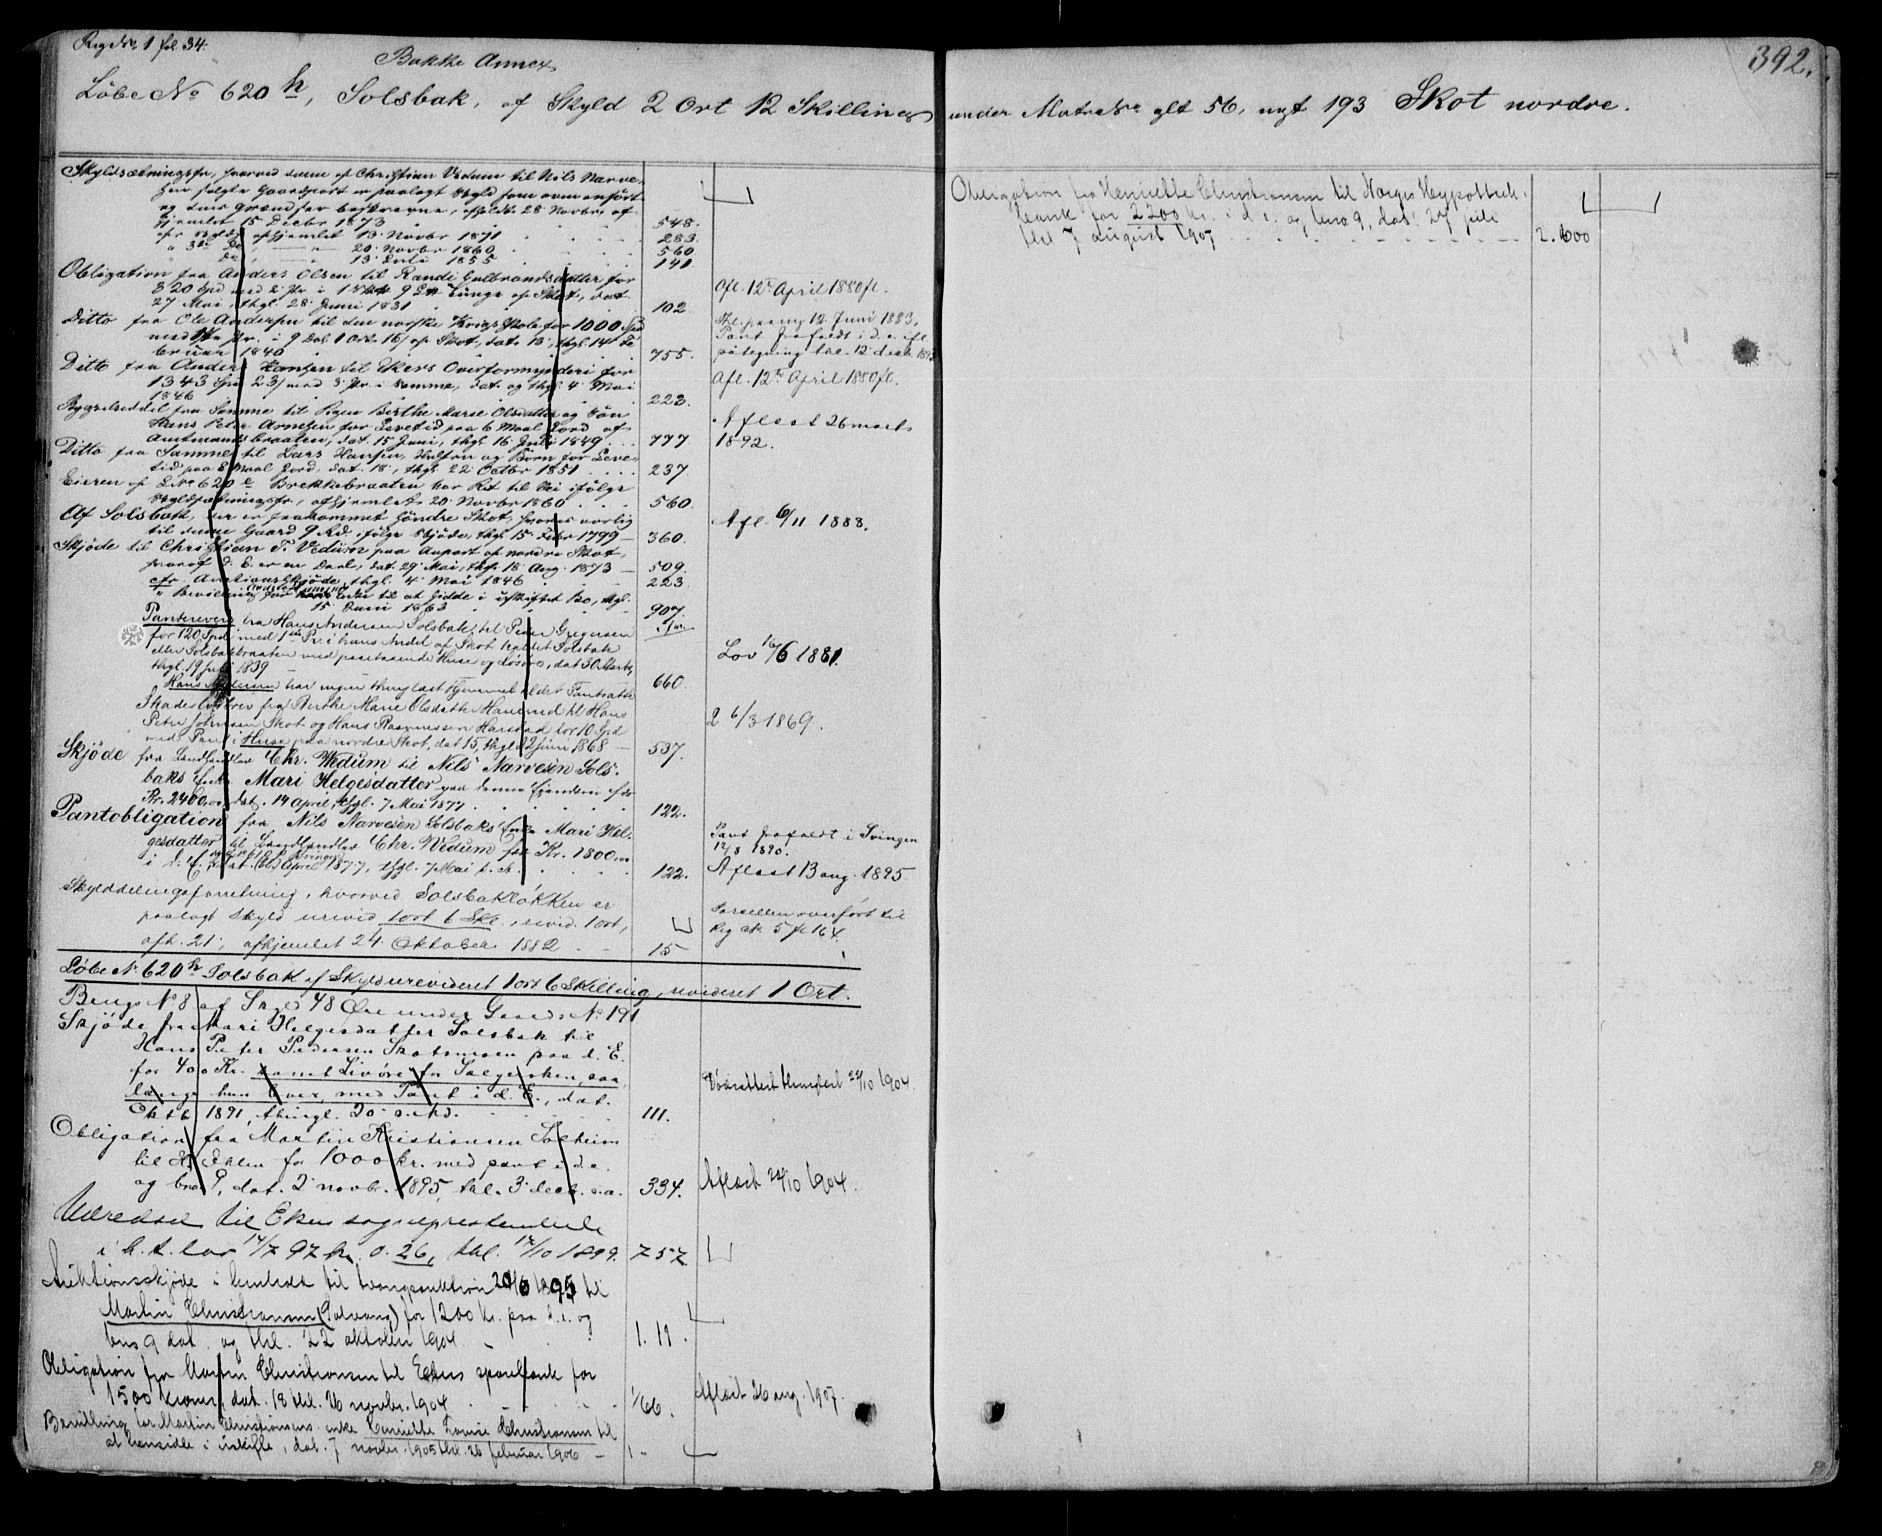 Reg. No. 1 fol. 34.
Bakke Annex
392.
Löbe No 620 h, Solsbak, af Skyld 2 Ort 12 Skilling under Matr. No. glt 56, nyt 193 Skot nordre.
Skyldsætningsfr., hvorved denne af Christian Vedum til Nils Narve-
sen solgte Gaardpart er paalagt Skyld som oven anført
og dens Grændser beskrevne, afholdt 28 Novbr, af-
hjemlet 15 Decbr 1873 548.
cfr. Skylds. afhjemlet 13 Novbr 1871 283.
" 3de Do — " — 20 Novbr 1860 560
" Do — " — 13 Juli 1855 141
Obligation fra Anders Olsen til Randi Gulbrandsdatter for
320 Spd med 2 Pr. i 1 9 Lunge af Skot, dat.
27 Mai, thgl. 28 Juni 1831 102
Afl. 12te April 1880 fl.
Ditto fra Ole Andersen til den norske Krigsskole for 1000 Spd
med Pr. i 9 Dal. 1 Ort 16 af Skot, dat. 13, thgl. 14 Fe-
bruar 1840 755.
12 Juni 1883,
Pant frafaldt i d. e. ifl.
påtegning thl. 12 decbr. 1893
Ditto fra Anders Hansen til Ekers Overformynderi for
1343 Spd 23 med 3 Pr. i samme, dat. og thgl. 4 Mai
1846 223.
Afl. 12te April 1880 fl.
Bygselseddel fra Samme til Pigen Birthe Marie Olsdatter og Søn
Hans Peter for Levetid paa 6 Maal Jord af
Amtmandsbraaten, dat. 15 Juni, thgl. 16 Juli 1849 777.
Aflæst 26 marts
1892.
Ditto fra Samme til Lars Hansen, Hustru og Børn for Leve-
tid paa 8 Maal Jord, dat. 18, thgl. 22 Octbr 1851 237.
Eieren af L. No 620 e Brekkebraaten har Ret til Vei ifölge
Skyldsætningsfr., afhjemlet 20 Novbr 1860 560.
Af Solsbak, der er frakommet Söndre Skot, svares aarlig
til denne Gaard 9 Rd. ifölge Skjöde, thgl. 15 Febr 1799 — 360.
Afl. 6/11 1888.
Skjöde til Christian T. Vedum paa Anpart af nordre Skot,
hvoraf d. E. er en Deel, dat. 29 Mai, thgl. 18 Aug. 1873 — 509.
cfr. Auctionsskjöde, thgl. 4 Mai 1846 223.
" Bevilling for Enke til at sidde i uskiftet Bo, thgl.
15 Juni 1863 907.
Panterevers fra Hans Andersen Solsbak til Peder Gregersen
for 120 Spd med 1ste Pr. i hans Andel af Skot kaldet Solsbak
eller Solsbakbraaten med paastaaende Huse og Løsøre, dat. 30 Marts,
thgl. 19 Juli 1839 660.
Lov 16/6 1881.
Hans Andersen har ingen thinglæst Hjemmel til det Pantsatte
Skadeslösbrev fra Birthe Marie Olsdatter til Hans
Peter Johnsen Skot og Hans Rasmussen Harstad for 10 Spd
med Pant i Huse paa nordre Skot, dat. 15, thgl. 12 Juni 1868 — 537.
2 6/3 1869.
Skjöde fra Landhandler Chr. Wedum til Nils Narvesen Sols-
baks Enke Mari Helgesdatter paa denne Eiendom for
Kr. 2400,00, dat. 14 April, thgl. 7 Mai 1877 122.
Pantobligation fra Nils Narvesen Solsbaks Enke Mari Hel-
gesdatter til Landhandler Chr. Wedum for Kr. 1800,00
i d. E., dat. April 1877, thgl. 7 Mai s. A. 122.
Pant frafaldt i Svingen
12/8 1890.
Aflæst 13 aug. 1895
Skylddelingsforretning, hvorved Solsbaklökken er
paalagt Skyld urevid. 1 ort 6 Skl., revid. 1 ort,
afh. 21, afhjemlet 24 Oktober 1882 15
Parcellen overført til
Reg. No. 5 fl 164.
Löbe N. 620 h Solsbak af Skyld urevideret 1 ort 6 Skilling, revideret 1 Ort.
Brugs No 8 af Skyld 48 Øre under Gaards No 191
Skjöde fra Mari Helgesdatter Solsbak til
Hans Peter Pedersen Skotsmoen paa d. E.
for 400 Kr. samt Livöre for Sælgersken, saa-
længe hun lever, med Pant i d. E., dat.
Oktb. 1891, thingl. 20 s. Md. 111.
Vedrættet thinglæst 22/10 1904.
Obligation fra Martin Kristiansen Solheim
til H. Ihlen for 1000 kr. med pant i d. e.
og bno 9, dat. 2 novbr. 1895, thl. 3 decb. s. a. 334.
Aflæst 22/10 1904.
Veiredsel til Ekers sogneprestembede
i h. t. lov 14/7 97 kr. 0.26, thl. 17/10 1899. 757.
Auktionsskjöde i henhold til tvangsauktion 20/6 1895 til
Martin Christiansen (Solvang) for 1200 Kr. paa d. e. og
bno 9 dat. og thl. 22 oktober 1904. 1. 19.
Obligation fra Martin Christiansen til Ekers sparebank for
1500 kroner, dat. 18 thl. 26 novbr. 1904 1/66.
Aflæst 26 aug. 1907.
Bevilling for Martin Christiansens enke Henriette Lovise Christiansen til
at hensidde i uskifte, dat. 7 novbr. 1905 thl. 26 februar 1906 — 1 -
Obligation fra Henriette Christiansen til Norges Hypothek-
bank for 2200 kr. i d. e. og bno 9, dat. 27 juli
thl 7 august 1907 2.600